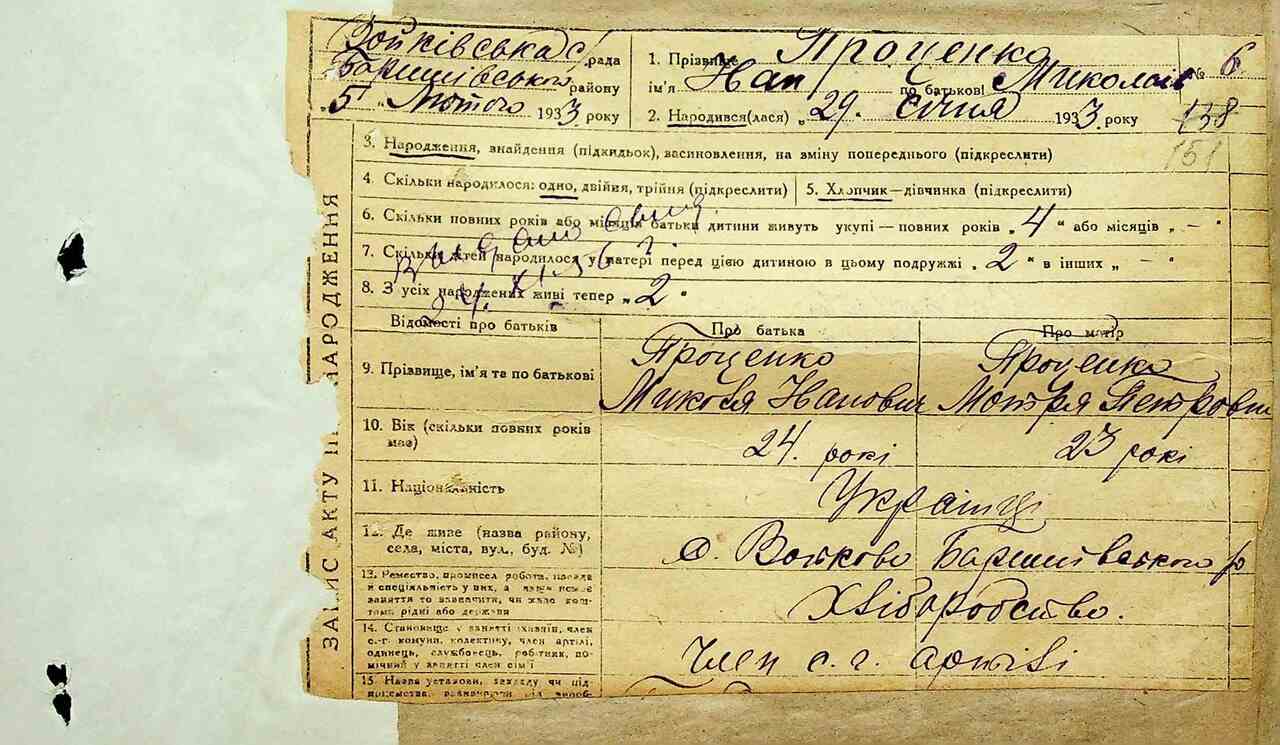 Войківська с/рада
Баришівського району
„5" Лютого 1933 року
1. Прізвище Проценко
ім'я Іван по батькові Миколаїв
№ 6
2. Народився(лася) „29. січня 1933 року
138
151
ЗАПИС АКТУ П НАРОДЖЕННЯ
3. Народження, знайдення (підкидьок), васиновлення, на зміну попереднього (підкреслити)
4. Скільки народилося: одно, двійня, трійня (підкреслити)
5. Хлопчик—дівчинка (підкреслити)
6. Скільки повних років або місяців батьки дитини живуть укупі—повних років „4" або місяців „—"
7. Скільки дітей народилося у матері перед цією дитиною в цьому подружжі „2" в інших „—"
8. З усіх народжених живі тепер „2"
Відомості про батьків
Про батька
Про матір
9. Прізвище, ім'я та по батькові
Проценко
Микола Іванович
Проценко
Мотря Петровн
10. Вік (скільки повних років має)
24. рокі
23 рокі
11. Національність
Українці
12. Де живе (назва району, села, міста, вул., буд. №)
с. Войково Баришівського р
13. Ремество, промисел робота, посада
й спеціяльність у них, а
заняття то зазначити, чи живе кош-
том рідні або держави
Хліборобство.
14. Становище у занятті (хазяїн, член
с.-г. комуни, колективу, член артілі,
одинець, службовець, робітник, по-
мічний у занятті член сім'ї
Член с. г. артілі
15. Назва установи, закладу чи під-
приємства,